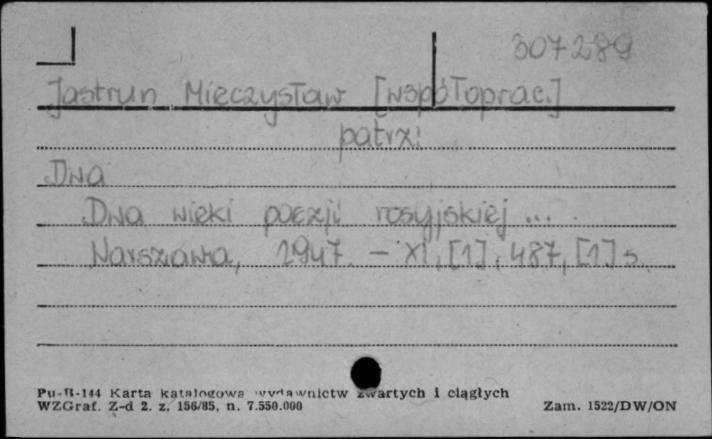 307289
Jastrun Mieczysław [współoprac.]
patrz:
Dwa
Dwa wieki poezji rosyjskiej ...
Warszawa, 1947. - XI, [1], 487, [1] s.
Pu-B-144 Karta katalogowa wydawnictw zwartych i ciągłych
WZGraf. Z-d 2. z. 156/85, n. 7.550.000
Zam. 1522/DW/ON